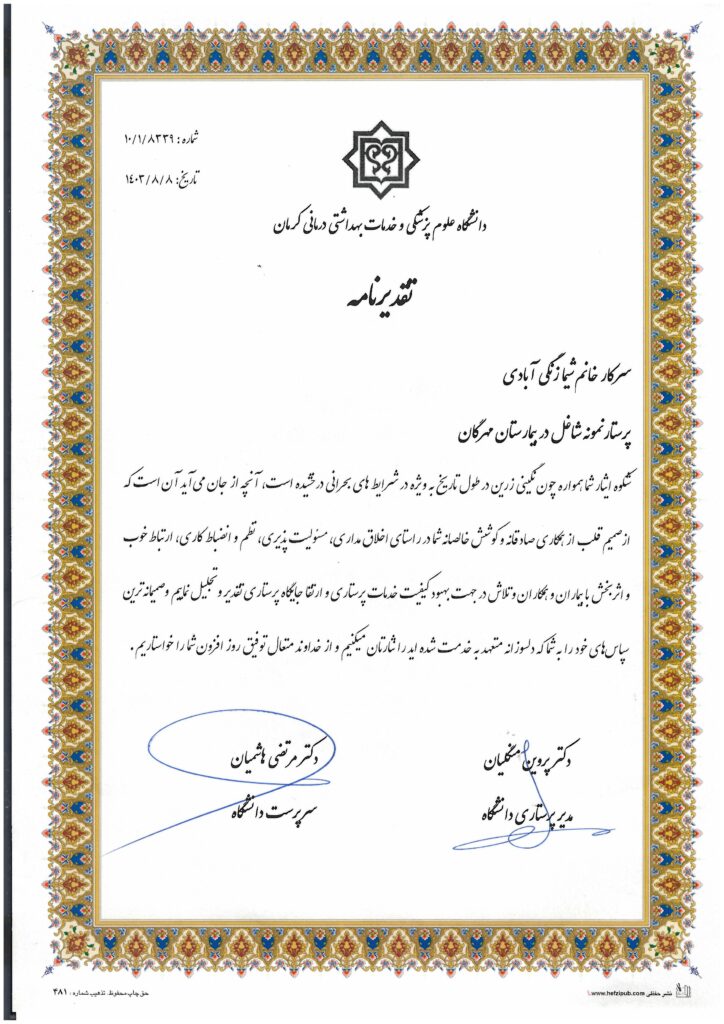 شماره: ۱۰/۱/۸۳۳۹
تاریخ: ۱۴۰۳/۸/۸
دانشگاه علوم پزشکی و خدمات بهداشتی درمانی کرمان
تقدیرنامه
سرکار خانم شیما زنگی آبادی
پرستار نمونه شاغل در بیمارستان مهرگان
شکوه ایثار شما همواره چون نگینی زرین در طول تاریخ به ویژه در شرایط های بحرانی درخشیده است، آنچه از جان می آید آن است که
از صمیم قلب از همکاری صادقانه و کوشش خالصانه شما در راستای اخلاق مداری، مسئولیت پذیری، نظم و انضباط کاری، ارتباط خوب
و اثربخش با بیماران و همکاران و تلاش در جهت بهبود کیفیت خدمات پرستاری و ارتقا جایگاه پرستاری تقدیر و تجلیل نمایم و صمیمانه ترین
سپاس های خود را به شما که دلسوزانه متعهد به خدمت شده اید را نثارتان میکنیم و از خداوند متعال توفیق روز افزون شما را خواستاریم.
دکتر پروین منگلیان
دکتر مرتضی هاشمیان
مدیر پرستاری دانشگاه
سرپرست دانشگاه
نشر حفظی www.hefzipub.com
حق چاپ محفوظ. تذهیب شماره: ۴۸۱